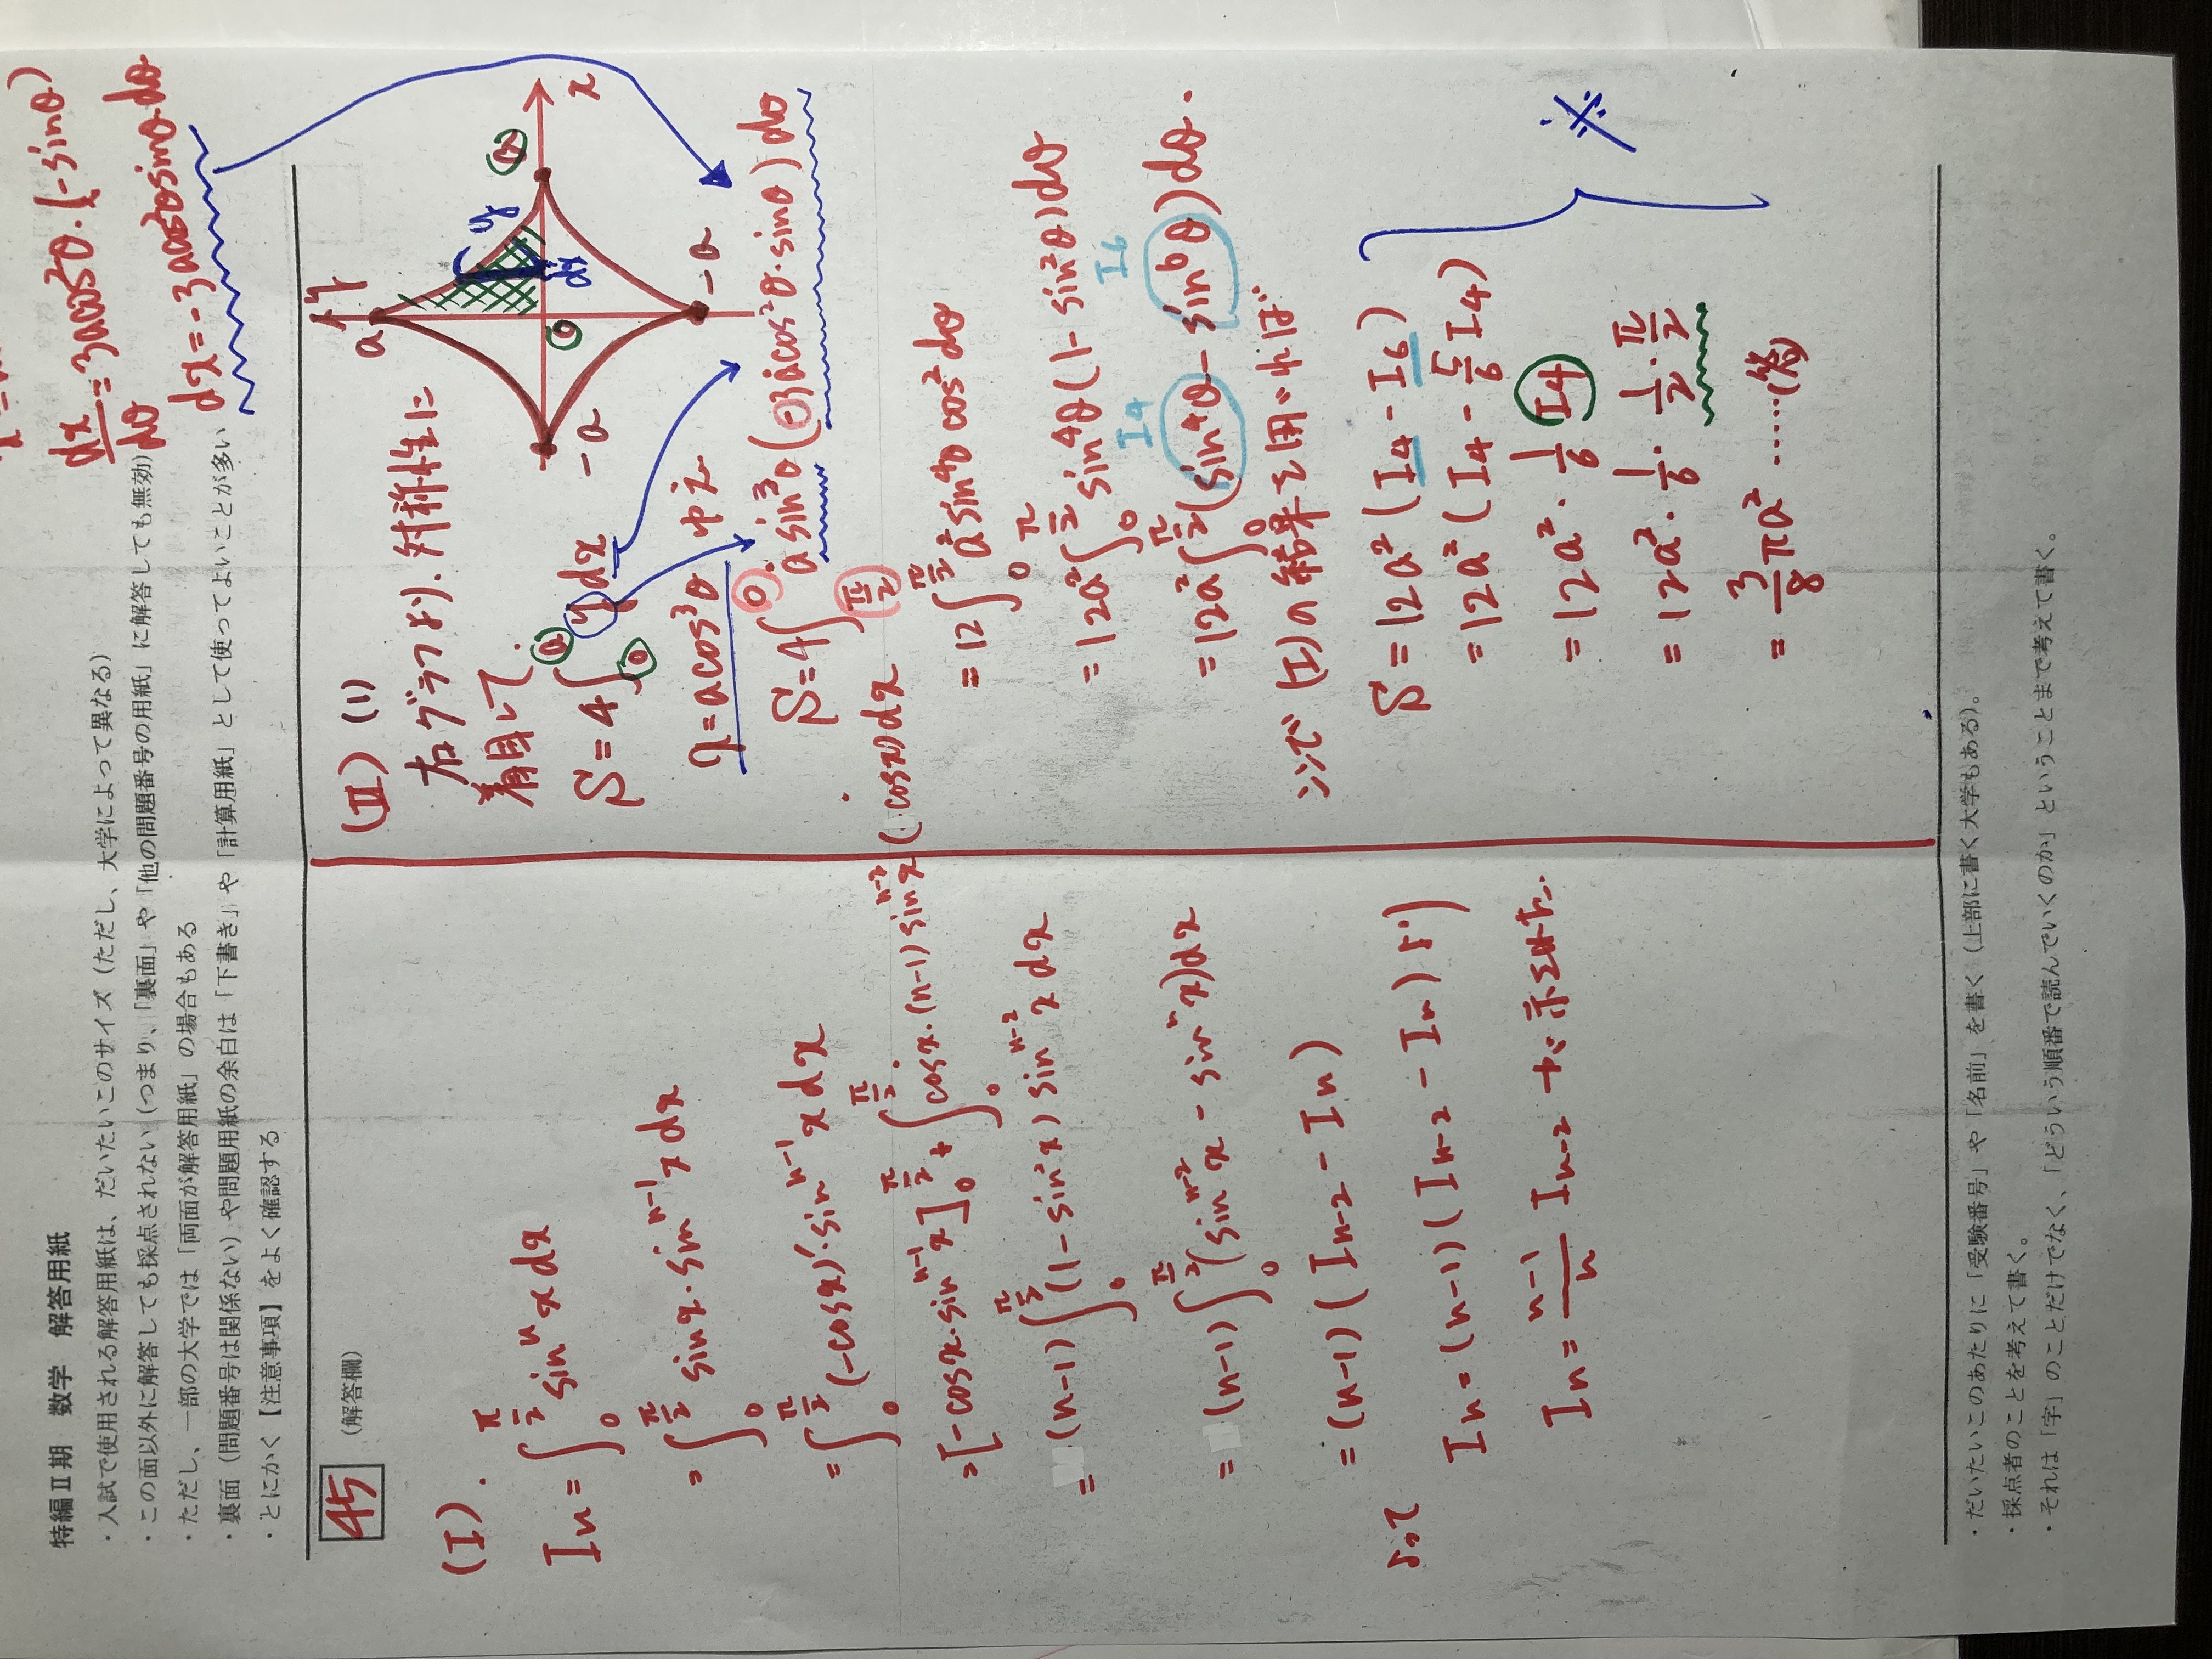 特編Ⅱ期 数学 解答用紙
・入試で使用される解答用紙は、だいたいこのサイズ（ただし、大学によって異なる）
・この面以外に解答しても採点されない（つまり、「裏面」や「他の問題番号の用紙」に解答しても無効）
・ただし、一部の大学では「両面が解答用紙」の場合もある
・裏面（問題番号は関係ない）や問題用紙の余白は「下書き」や「計算用紙」として使ってよいことが多い
・とにかく【注意事項】をよく確認する
45 （解答欄）
(I).
In = ∫₀^{π/2} sinⁿx dx
= ∫₀^{π/2} sinx・sin^{n-1}x dx
= ∫₀^{π/2} (-cosx)'・sin^{n-1}x dx
= [-cosx・sin^{n-1}x]₀^{π/2} + ∫₀^{π/2} cosx・(n-1)sin^{n-2}x(cosx)dx
= (n-1)∫₀^{π/2} (1-sin²x) sin^{n-2}x dx
= (n-1)∫₀^{π/2} (sin^{n-2}x - sinⁿx)dx
= (n-1)(In-2 - In)
よって In = (n-1)(In-2 - In) より
In = (n-1)/n In-2 が示せた.
dx/dθ = 3acos²θ・(-sinθ)
dx = -3acos²θsinθdθ
(II) (1)
右グラフより、対称性に
着目して.
S = 4∫₀^a y dx
x = acos³θ ゆえ
S = 4∫_{π/2}^0 asin³θ(-3acos²θ・sinθ)dθ
= 12∫₀^{π/2} a²sin⁴θcos²dθ
= 12a²∫₀^{π/2} sin⁴θ(1-sin²θ)dθ
I4 I6
= 12a²∫₀^{π/2} (sin⁴θ - sin⁶θ)dθ.
ここで (I)の結果を用いれば..
S = 12a²(I4 - I6)
= 12a²(I4 - 5/6 I4)
= 12a²・1/6 I4
= 12a²・1/6・1/2・π/2
= 3/8 πa² ……(答)
※
y
x
a
a
-a
-a
0
y
dx
・だいたいこのあたりに「受験番号」や「名前」を書く（上部に書く大学もある）。
・採点者のことを考えて書く。
・それは「字」のことだけでなく、「どういう順番で読んでいくのか」ということまで考えて書く。